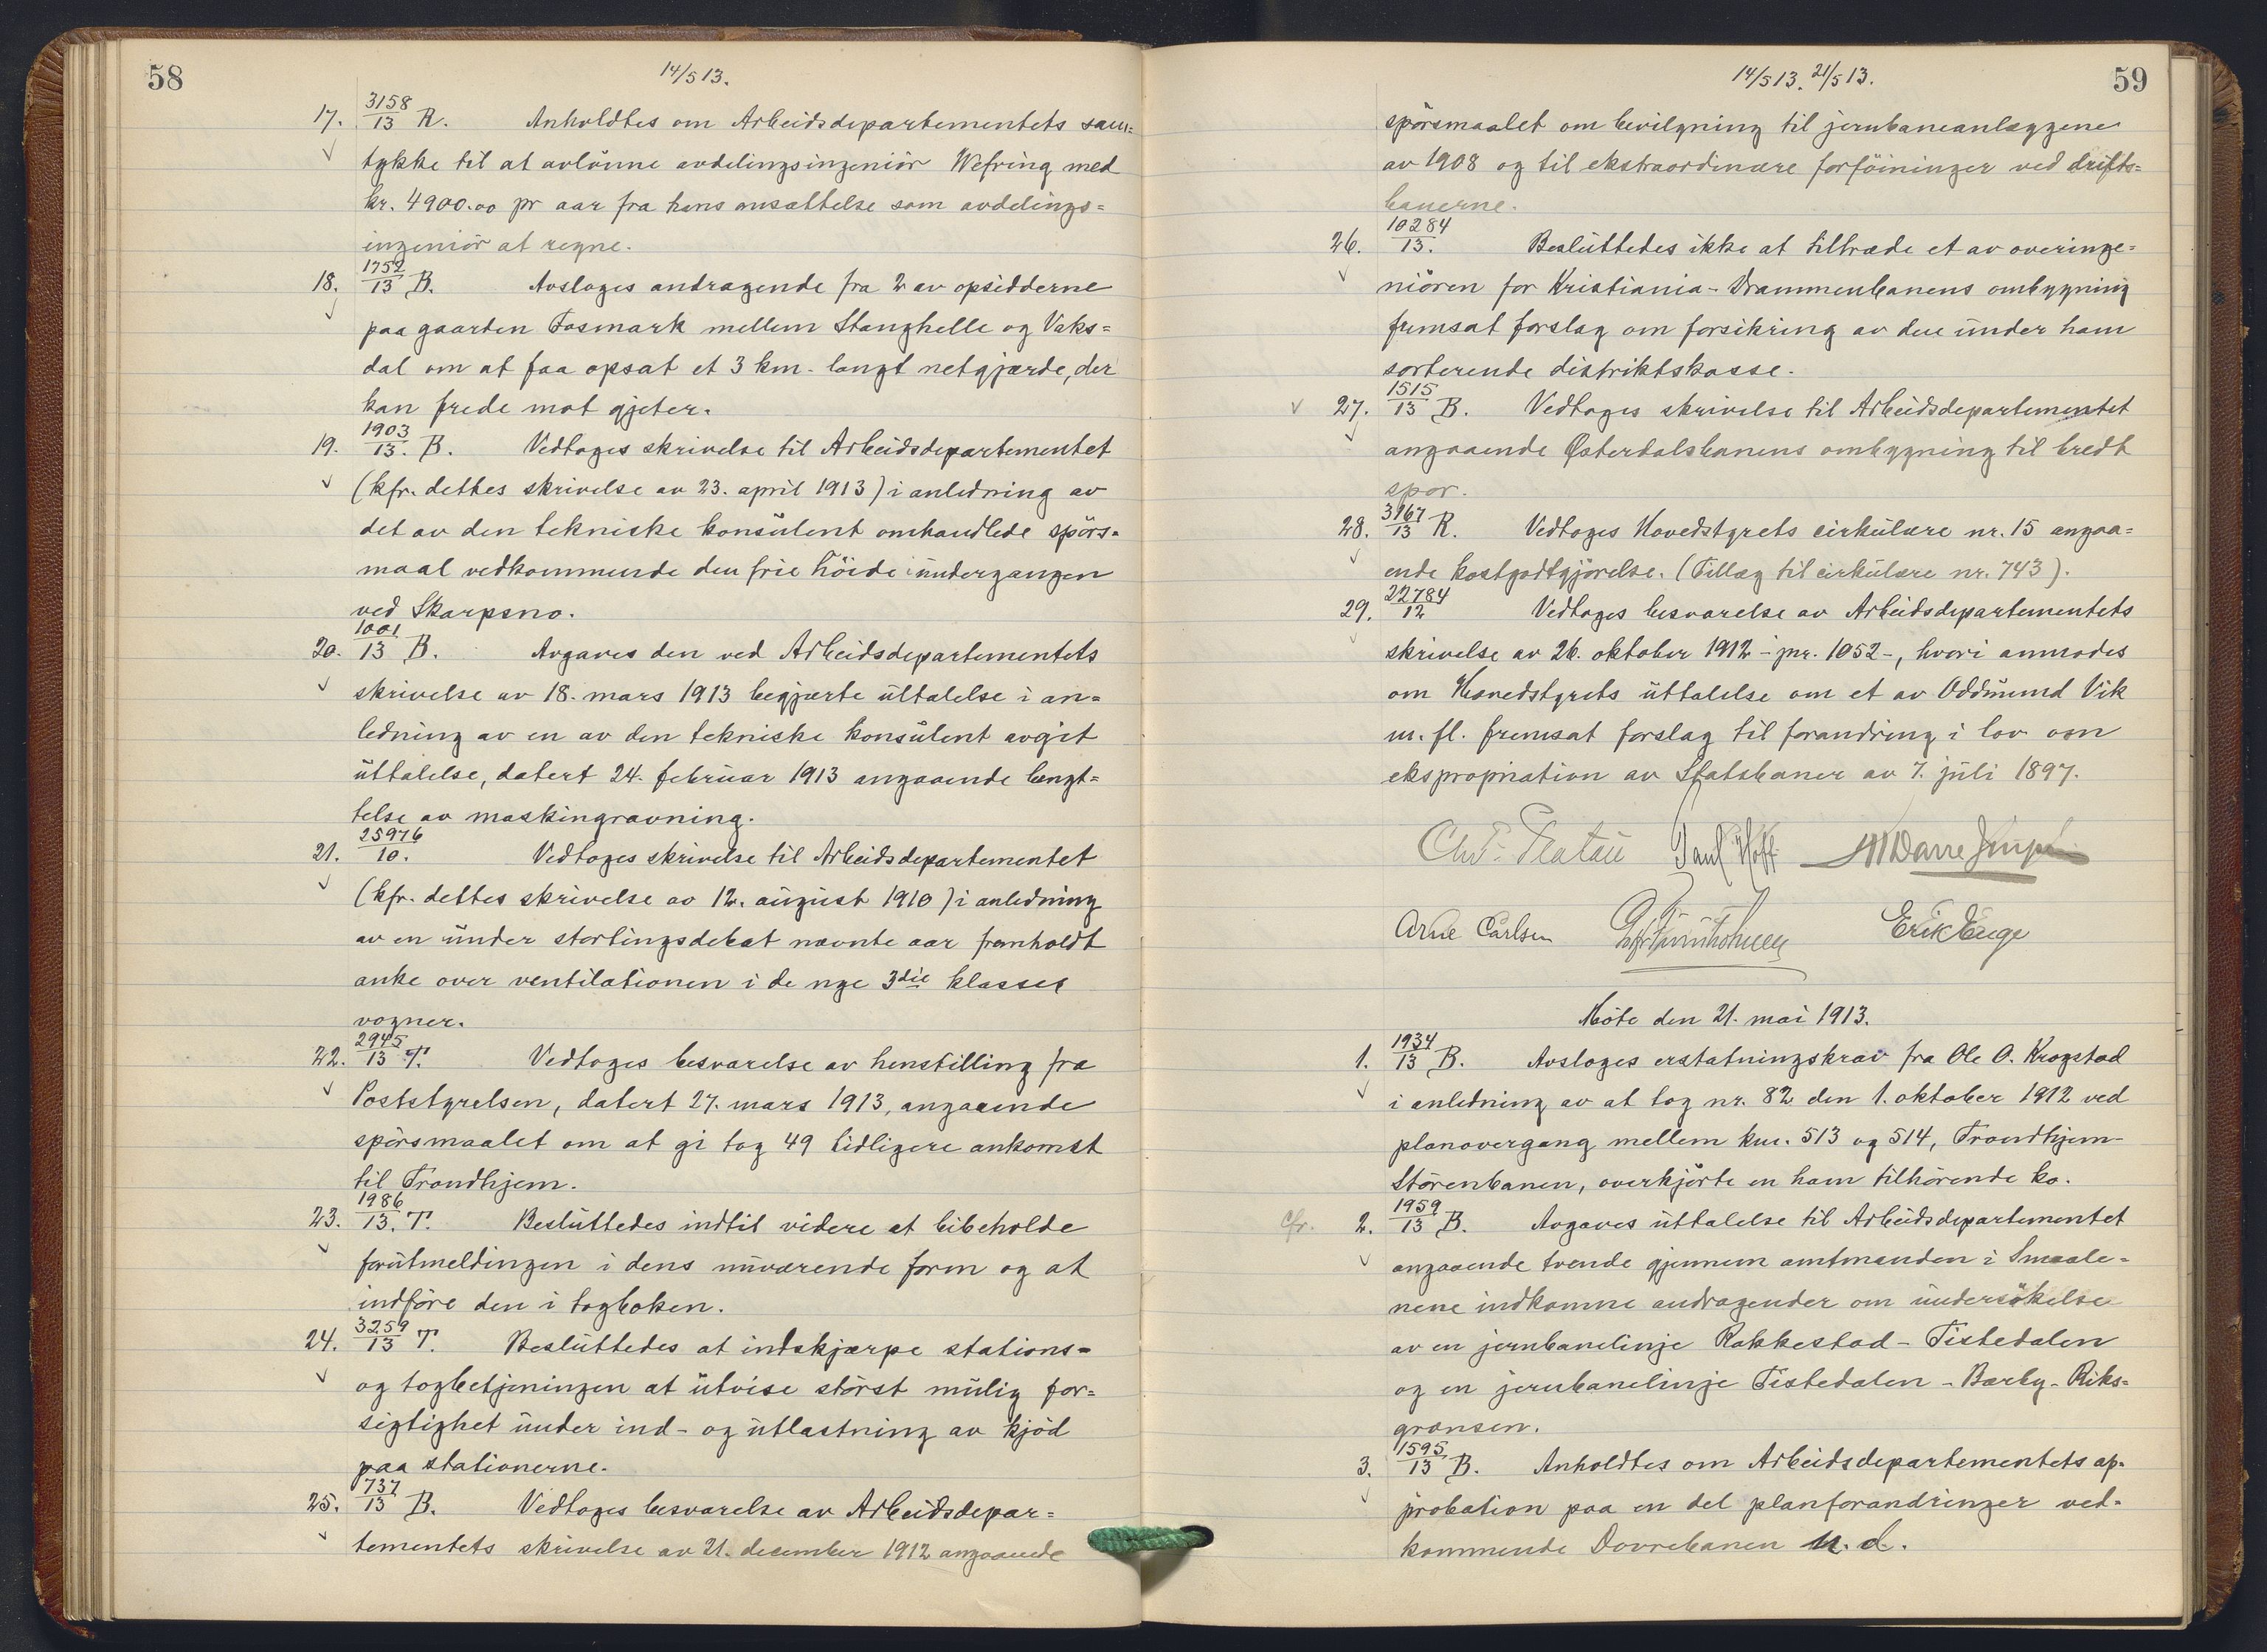 58
14/5 13.
17. 3158/13 R. Anholdtes om Arbeidsdepartementets sam=
tykke til at avlönne avdelingsingeniör Wefring med
kr. 4900.00 pr aar fra hans ansættelse som avdelings=
ingeniör at regne.
18. 1752/13 B. Avsloges andragende fra 2 av opsidderne
paa gaarden Fosmark mellem Stanghelle og Vaks=
dal om at faa opsat et 3 km. langt netgjærde, der
kan frede mot gjeter.
19. 1903/13. B. Vedtoges skrivelse til Arbeidsdepartementet
(kfr. dettes skrivelse av 23. april 1913) i anledning av
det av den tekniske konsulent omhandlede spörs=
maal vedkommende den frie höide i undergangen
ved Skarpsno.
20. 1001/13 B. Avgaves den ved Arbeidsdepartementets
skrivelse av 18. mars 1913 begjærte uttalelse i an=
ledning av en av den tekniske konsulent avgit
uttalelse, datert 24. februar 1913 angaaende benyt=
telse av maskingravning.
21. 25976/10. Vedtoges skrivelse til Arbeidsdepartementet
(kfr. dettes skrivelse av 12. august 1910) i anledning
av en under stortingsdebat nævnte aar fremholdt
anke over ventilationen i de nye 3die klasses
vogner.
22. 2945/13 T. Vedtoges besvarelse av henstilling fra
Poststyrelsen, datert 27. mars 1913, angaaende
spörsmaalet om at gi tog 49 tidligere ankomst
til Trondhjem.
23. 1986/13. T. Besluttedes indtil videre at bibeholde
forutmeldingen i dens nuværende form og at
indföre den i togboken.
24. 3259/13 T. Besluttedes at indskjærpe stations=
og togbetjeningen at utvise störst mulig for=
sigtighet under ind- og utlastning av kjöd
paa stationerne.
25. 737/13 B. Vedtoges besvarelse av Arbeidsdepar=
tementets skrivelse av 21. december 1912 angaaende
14/5 13. 21/5 13.
59
spörsmaalet om bevilgning til jernbaneanlæggene
av 1908 og til ekstraordinære forföininger ved drifts=
banerne.
26. 10284/13. Besluttedes ikke at tiltræde et av overinge=
niören for Kristiania-Drammenbanens ombygning
fremsat forslag om forsikring av den under ham
sorterende distriktskasse.
27. 1515/13 B. Vedtoges skrivelse til Arbeidsdepartementet
angaaende Østerdalsbanens ombygning til bredt
spor.
28. 3167/13 R. Vedtoges Hovedstyrets cirkulære nr. 15 angaa=
ende kostgodtgjörelse. (Tillæg til cirkulære nr. 743).
29. 22784/12 Vedtoges besvarelse av Arbeidsdepartementets
skrivelse av 26. oktober 1912 - jnr. 1052 -, hvori anmodes
om Hovedstyrets uttalelse om et av Oddmund Vik
m. fl. fremsat forslag til forandring i lov om
ekspropriation av Statsbaner av 7. juli 1897.
Chr. Platou Paul Hoff M Darre Jensen
Arne Carlsen Erik Enge
Möte den 21. mai 1913.
1. 1934/13 B. Avsloges erstatningskrav fra Ole O. Krogstad
i anledning av at tog nr. 82 den 1. oktober 1912 ved
planovergang mellem km. 513 og 514, Trondhjem-
Störenbanen, overkjörte en ham tilhörende ko.
cfr. 2. 1959/13 B. Avgaves uttalelse til Arbeidsdepartementet
angaaende tvende gjennem amtmanden i Smaale=
nene indkomne andragender om undersökelse
av en jernbanelinje Rakkestad - Tistedalen
og en jernbanelinje Tistedalen - Bærby - Riks=
grænsen.
3. 1595/13 B. Anholdtes om Arbeidsdepartementets ap=
probation paa en del planforandringer ved=
kommende Dovrebanen n. d.